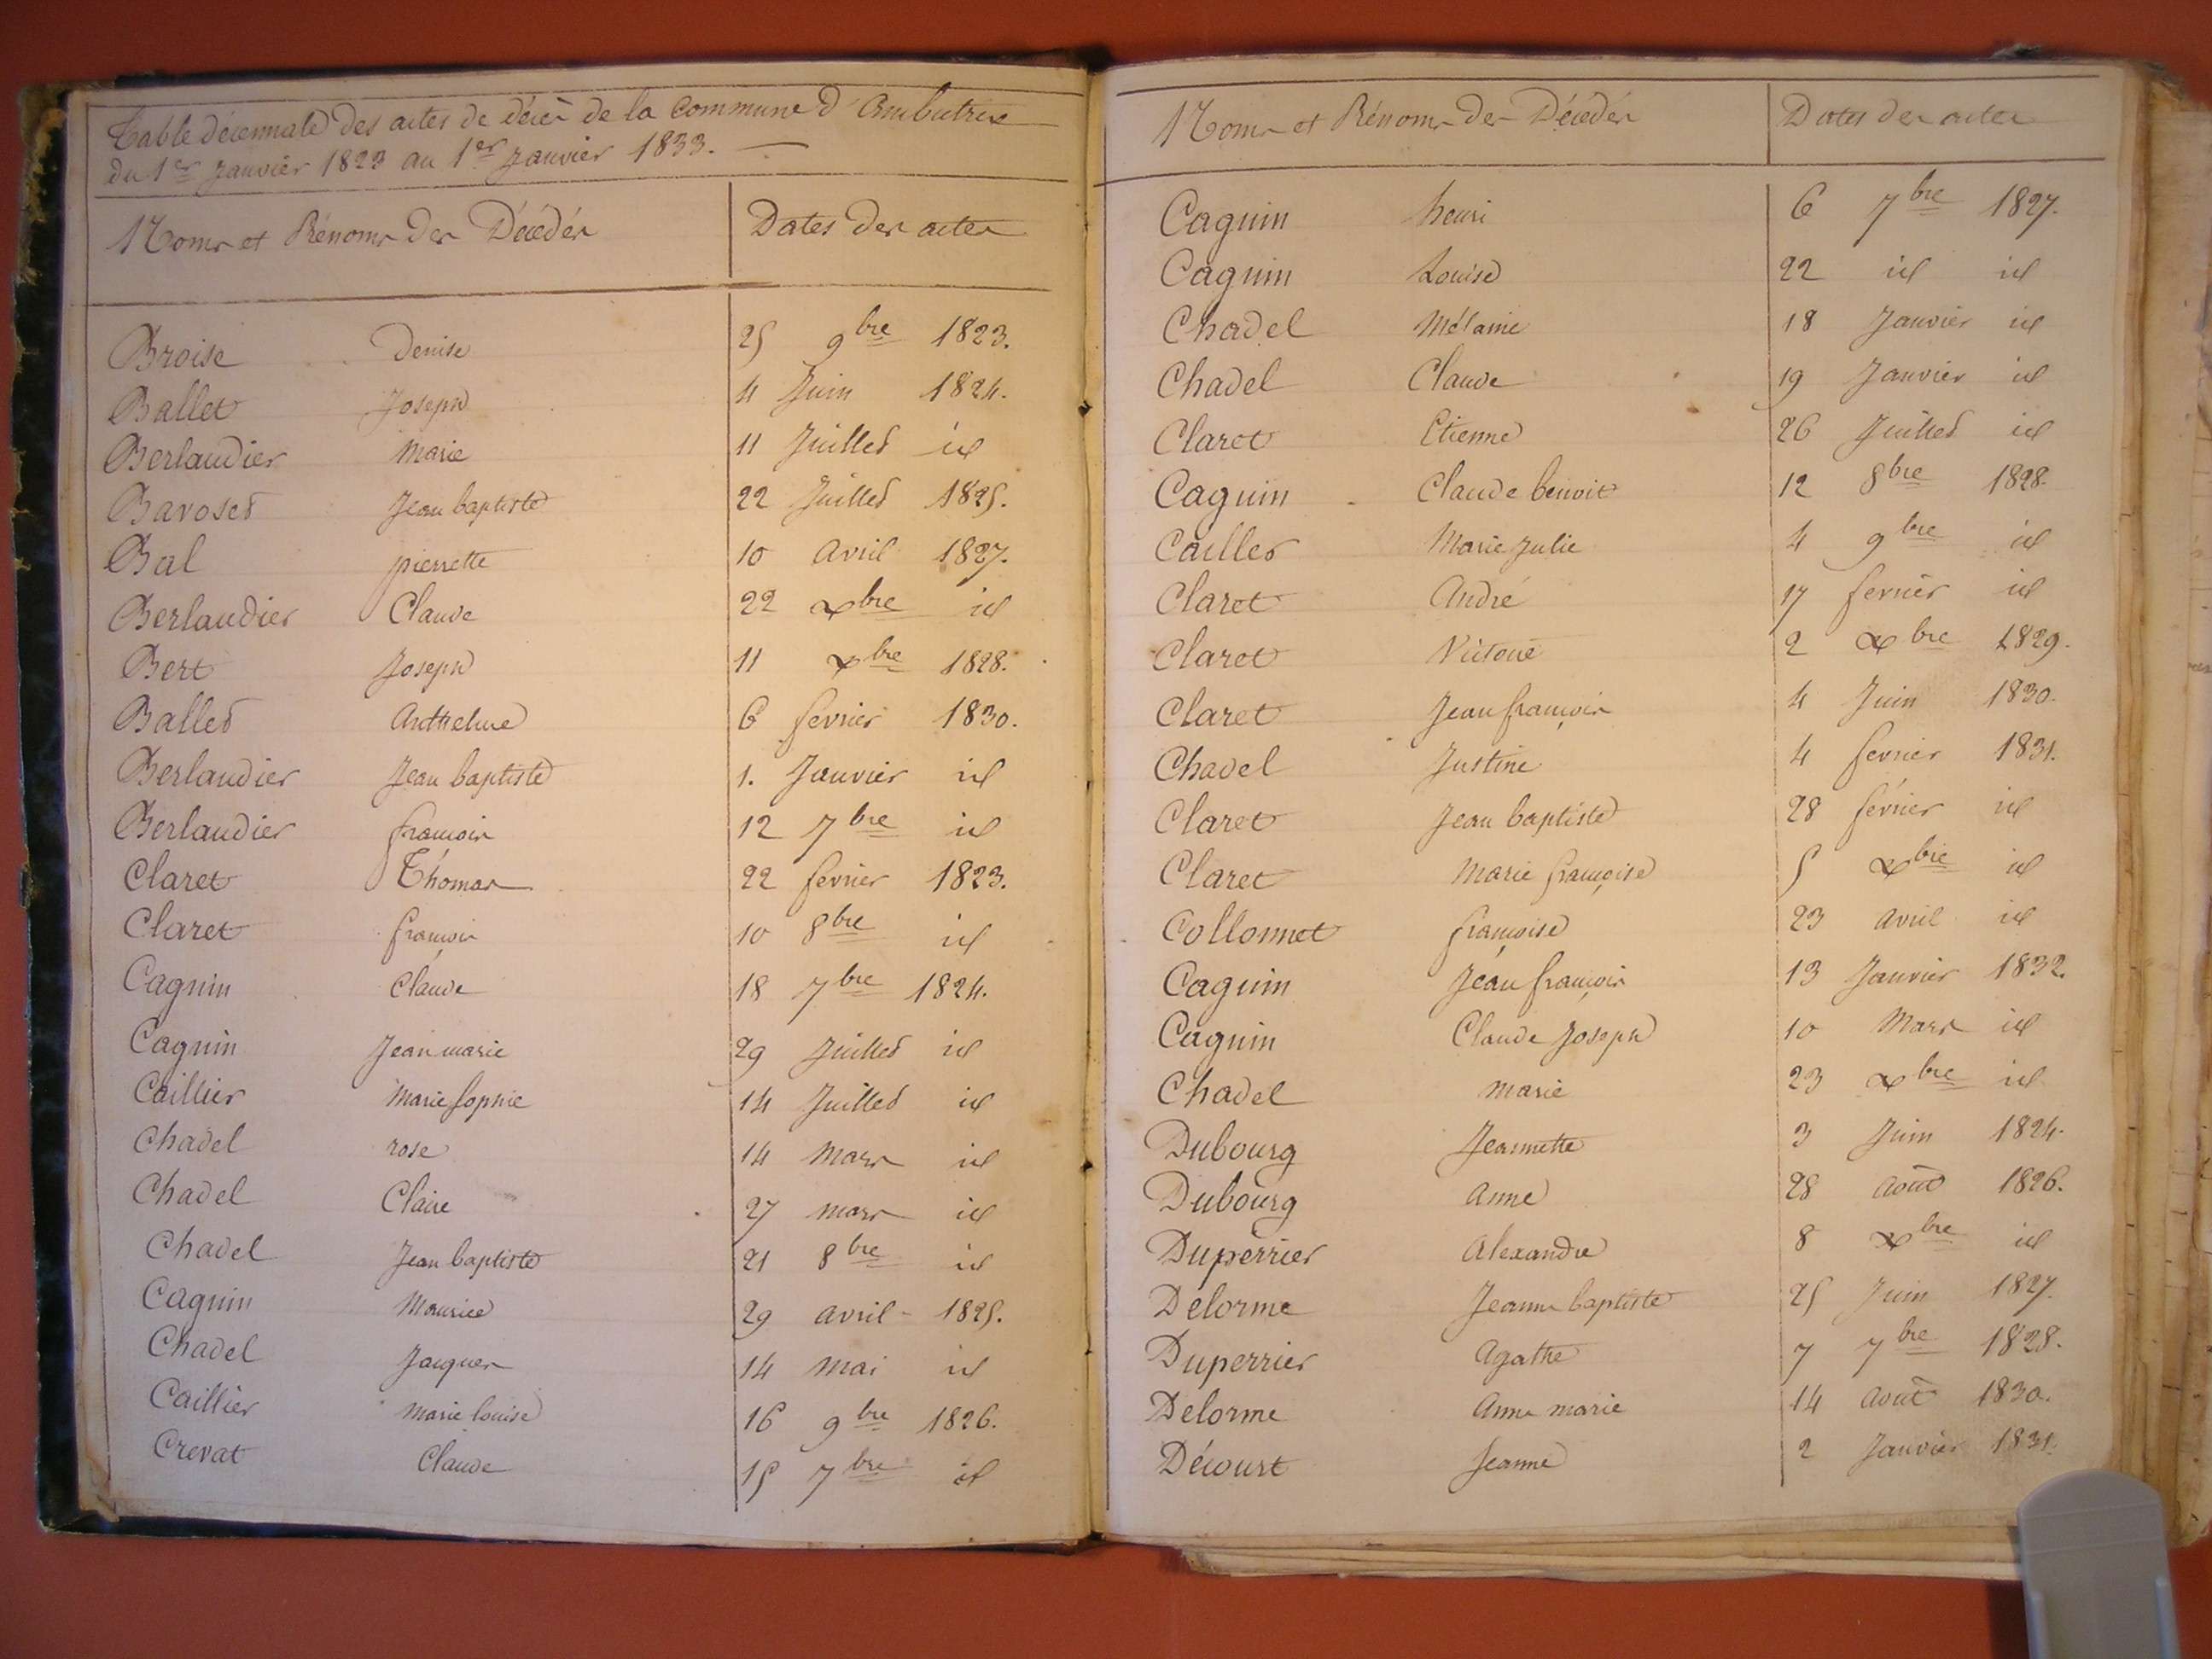 Table décennale des actes de décès de la Commune d'Ambutrix
du 1er Janvier 1823 au 1er Janvier 1833.
Noms et Prénoms des Décédés Dates des actes
Broise Denise 25 9bre 1823.
Ballet Joseph 4 Juin 1824.
Berlandier Marie 11 Juillet id
Bavoset Jean baptiste 22 Juillet 1825.
Bal pierrette 10 avril 1827.
Berlandier Claude 22 xbre id
Bert Joseph 11 xbre 1828.
Ballet Anthelme 6 fevrier 1830.
Berlandier Jean baptiste 1. Janvier id
Berlandier françois 12 7bre id
Claret Thomas 22 fevrier 1823.
Claret françois 10 8bre id
Caguin Claude 18 7bre 1824.
Caguin Jean marie 29 Juillet id
Caillier Marie Sophie 14 Juillet id
Chadel rose 14 Mars id
Chadel Claire 27 mars id
Chadel Jean baptiste 21 8bre id
Caguin Maurice 29 avril 1825.
Chadel Jacques 14 Mai id
Caillier Marie louise 16 9bre 1826.
Crevat Claude 15 7bre id
Noms et Prénoms des Décédés Dates des actes
Caguin henri 6 7bre 1827.
Caguin Louise 22 id id
Chadel Mélanie 18 Janvier id
Chadel Claude 19 Janvier id
Claret Etienne 26 Juillet id
Caguin Claude benoit 12 8bre 1828.
Cailler Marie Julie 4 9bre id
Claret André 17 fevrier id
Claret Victoire 2 xbre 1829.
Claret Jean françois 4 Juin 1830.
Chadel Justine 4 fevrier 1831.
Claret Jean baptiste 28 février id
Claret Marie françoise 5 xbre id
Collonnet françoise 23 avril id
Caguin Jean françois 13 Janvier 1832.
Caguin Claude Joseph 10 Mars id
Chadel marie 23 xbre id
Dubourg Jeannette 3 Juin 1824.
Dubourg Anne 28 août 1826.
Duperrier Alexandre 8 xbre id
Delorme Jeanne baptiste 25 Juin 1827.
Duperrier Agathe 7 7bre 1828.
Delorme Anne marie 14 août 1830.
Décourt Jeanne 2 Janvier 1831.